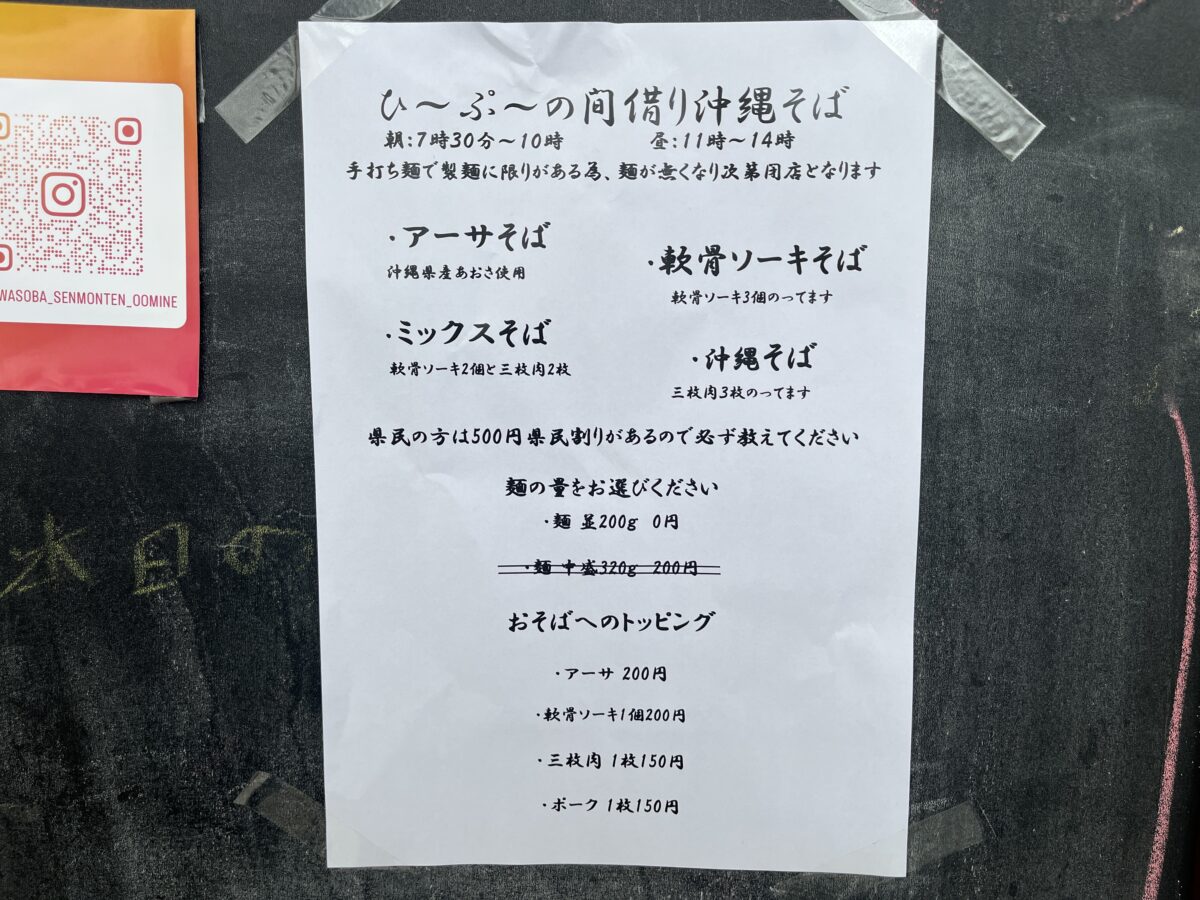 ひ～ぷ～の間借り沖縄そば
朝:7時30分～10時　昼:11時～14時
手打ち麺で製麺に限りがある為、麺が無くなり次第閉店となります
・アーサそば
沖縄県産あおさ使用
・軟骨ソーキそば
軟骨ソーキ3個のってます
・ミックスそば
軟骨ソーキ2個と三枚肉2枚
・沖縄そば
三枚肉3枚のってます
県民の方は500円県民割りがあるので必ず教えてください
麺の量をお選びください
・麺 並200g 0円
・麺 中盛320g 200円
おそばへのトッピング
・アーサ 200円
・軟骨ソーキ1個200円
・三枚肉 1枚150円
・ポーク 1枚150円
WASOBA_SENMONTEN_OOMINE
本日の